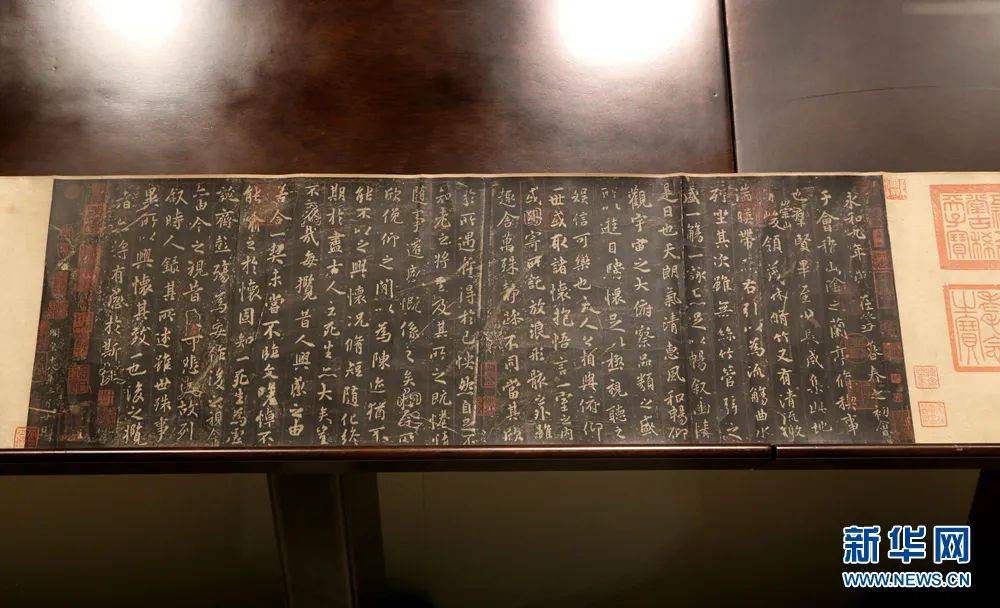 永和九年在癸丑暮春之初會
于會稽山陰之蘭亭脩稧事
也群賢畢至少長咸集此地
崇山
有峻領茂林脩竹又有清流激
湍暎帶左右引以為流觴曲水
列坐其次雖無絲竹管弦之
盛一觴一詠亦足以暢敘幽情
是日也天朗氣清惠風和暢仰
觀宇宙之大俯察品類之盛
所以遊目騁懷足以極視聽之
娛信可樂也夫人之相與俯仰
一世或取諸懷抱悟言一室之內
或因寄所託放浪形骸之外雖
趣舍萬殊靜躁不同當其欣
於所遇蹔得於己怏然自足不
知老之將至及其所之既惓情
隨事遷感慨係之矣向之所
欣俛仰之間以為陳迹猶不
能不以之興懷況脩短隨化終
期於盡古人云死生亦大矣豈
不痛哉每攬昔人興感之由
若合一契未嘗不臨文嗟悼不
能喻之於懷固知一死生為虛
誕齊彭殤為妄作後之視今
亦由今之視昔悲夫故列
敘時人錄其所述雖世殊事
異所以興懷其致一也後之攬
者亦將有感於斯文
新华网
WWW.NEWS.CN